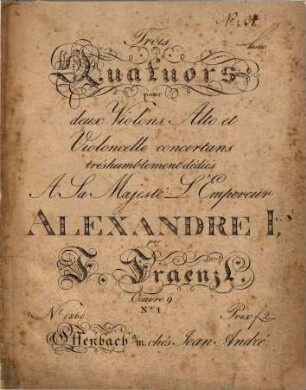 No. 31.
Trois
Quatuors
pour
deux Violons Alto et
Violoncelle concertans
trèshumblement dédiés
A Sa Majesté L'Empereur
ALEXANDRE I,
par
F. Fraenzl
Oeuvre 9
No. 1
No. 1860 Prix f 2
Offenbach s/m. chés Jean André